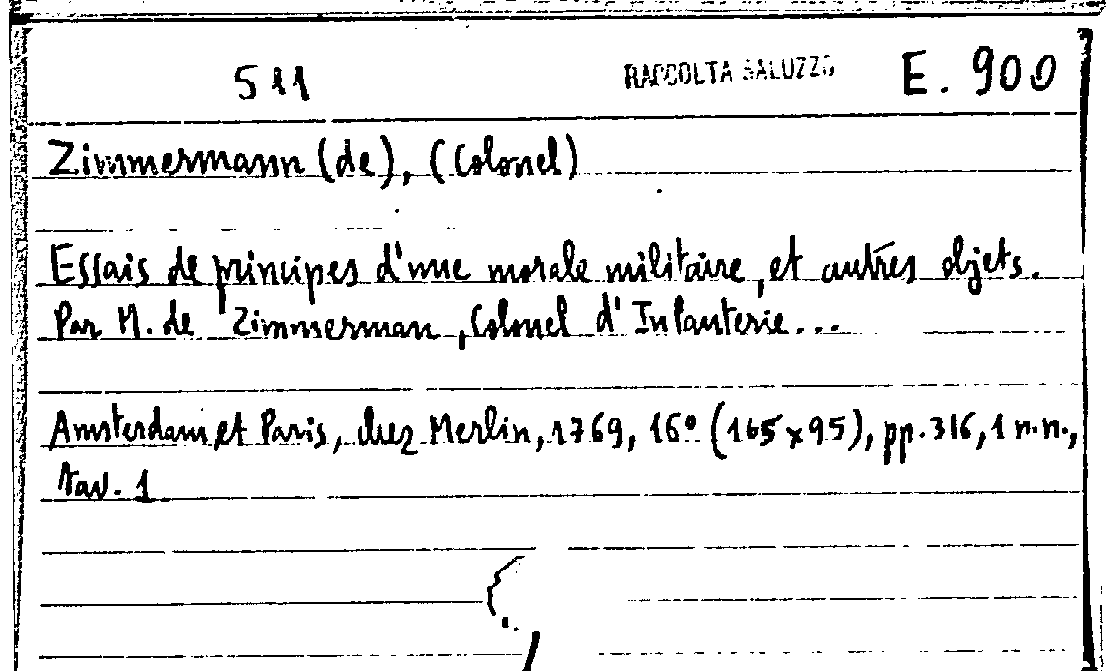 511 RACCOLTA SALUZZO E. 900
Zimmermann (de), (Colonel)
Essais de principes d'une morale militaire, et autres objets.
Par M. de Zimmerman, Colonel d'Infanterie...
Amsterdam et Paris, chez Merlin, 1769, 16° (165x95), pp. 316, 1 n.n.,
tav. 1